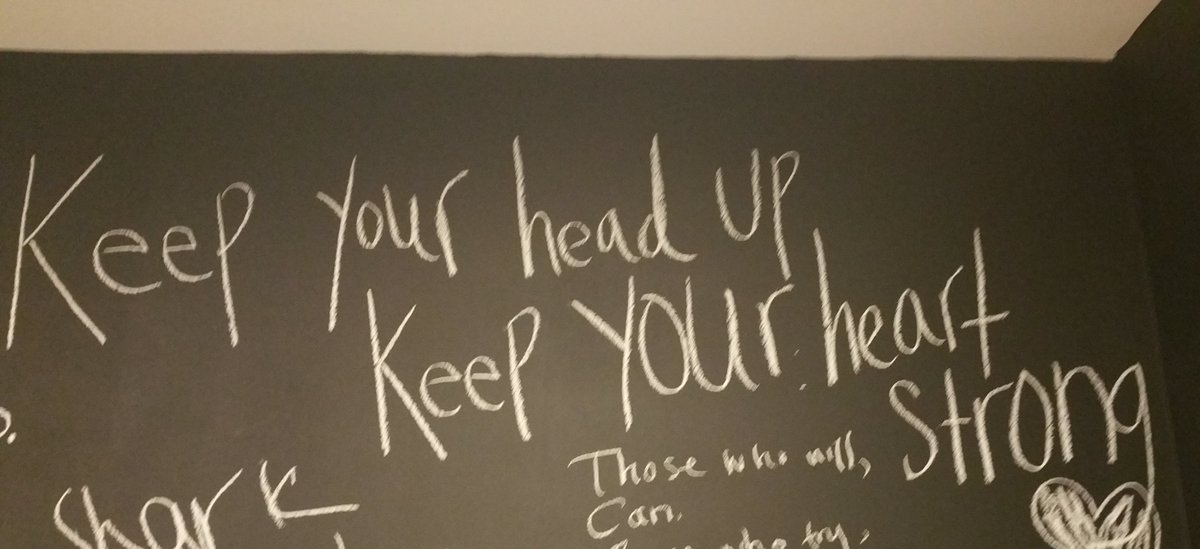 Keep your head up
Keep your heart
strong
Those who will,
Can.
who try,
Shark